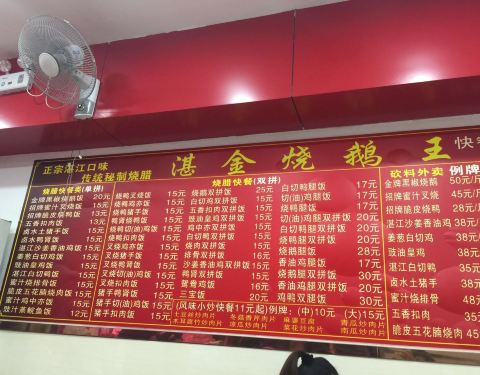 正宗湛江口味
传统秘制烧腊
湛金烧鹅王
快餐
烧腊快餐类(单拼)
金牌黑椒烧鹅饭 20元
招牌蜜汁叉烧饭 15元
招牌脆皮烧鸭饭 13元
五香扣肉饭 15元
卤水土猪手饭 15元
卤水鸭肾饭 15元
湛江沙姜香油鸡饭 15元
姜葱白切鸡饭 15元
豉油皇鸡饭 15元
湛江白切鸭饭 15元
蜜汁烧排骨饭 16元
脆皮五花腩烧肉饭 15元
蜜汁鸡中亦饭 15元
豉汁蒸鲩鱼饭 12元
烧鸭叉烧饭 15元
烧鸭鸡亦饭 15元
鸭肾烧鸭饭 15元
烧鸭猪手饭 15元
烧鸭扣肉饭 15元
叉烧鸡亦饭 15元
叉烧猪手饭 15元
叉烧鸭肾饭 15元
叉烧扣肉饭 15元
叉烧切(油)鸡饭 15元
猪手鸡亦饭 15元
猪手鸭肾饭 15元
猪手切(油)鸡饭 15元
猪手扣肉饭 15元
烧腊快餐(双拼)
烧鹅双拼饭 25元
白切鸡双拼饭 15元
五香扣肉双拼饭 15元
豉油皇鸡双拼饭 15元
鸡中亦双拼饭 15元
烧肉双拼饭 15元
排骨双拼饭 16元
沙姜香油鸡双拼饭 15元
鸭肾双拼饭 15元
鸳鸯鸡饭 16元
三宝饭 20元
白切鸭腿饭 17元
切(油)鸡腿饭 17元
烧鸭腿饭 17元
白切鸡腿饭 17元
切(油)鸡腿双拼饭 30元
白切鸡腿双拼饭 30元
香油鸡腿饭 17元
烧鹅腿饭 28元
烧鹅腿双拼饭 35元
香油鸡腿双拼饭 30元
鸡鸭双腿饭 30元
(风味小炒快餐11元起)例牌:(中)10元 (大)15元
土豆丝炒肉片 冬菇香芹肉片 麻婆豆腐 青瓜炒肉片
木耳腐竹炒肉片 凉瓜炒肉片 菜花炒肉片 南瓜炒肉片
砍料外卖 例牌
金牌黑椒烧鹅 50元/斤
招牌蜜汁叉烧 45元/斤
招牌脆皮烧鸭 28元/
湛江沙姜香油鸡 38元/
姜葱白切鸡 38元
豉油皇鸡 38元
湛江白切鸭 35元
卤水土猪手 38元
蜜汁烧排骨 48元
五香扣肉 35元
脆皮五花腩烧肉 45元